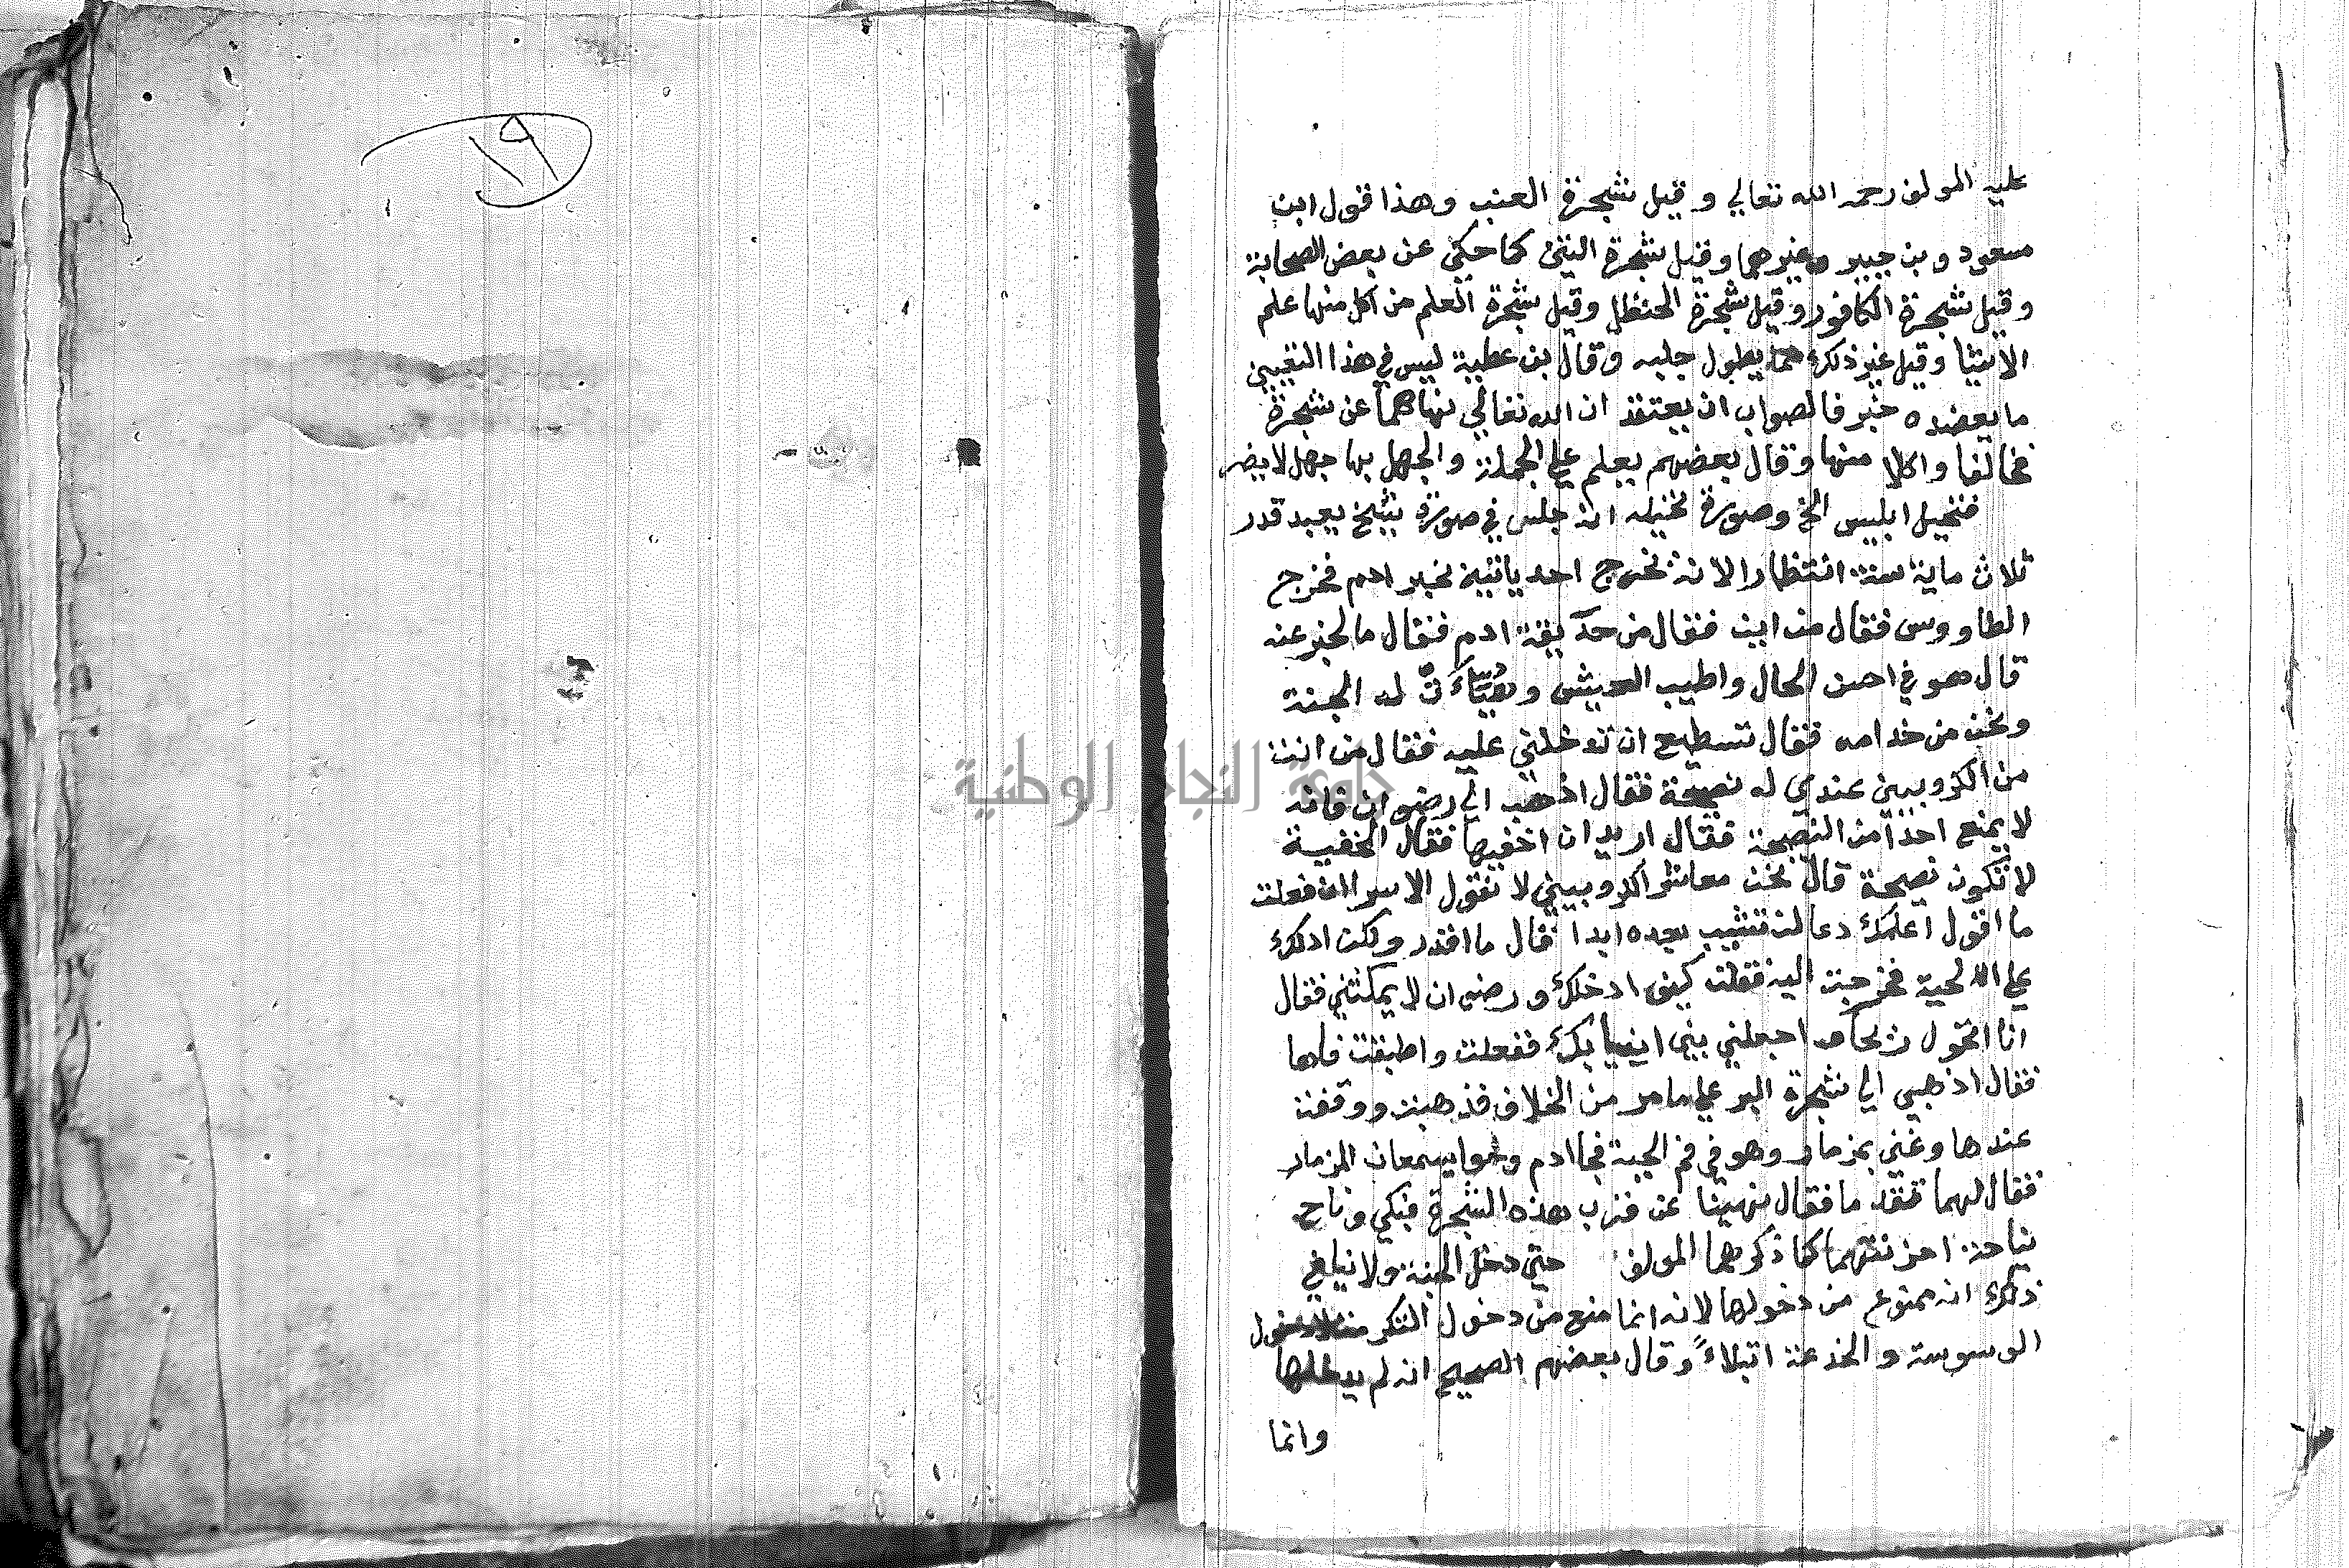 عليه المولف رحمه الله تعالي وقيل شجرة العنب وهذا قول ابن
مسعود وبن جبير وغيرهما وقيل شجرة التين كما حكي عن بعض الصحابة
وقيل شجرة الكافور وقيل شجرة الحنظل وقيل شجرة العلم من اكل منها علم
الاشيا وقيل غير ذلك مما يطول جلبه وقال بن عطية ليس في هذا التعيين
ما يعضده خبر فالصواب ان يعتقد ان الله تعالي نهاهما عن شجرة
فخالفا واكلا منها وقال بعضهم يعلم علي الجملة والجهل بها جهل لا يضر
فتحيل ابليس الخ وصورة تحيله انه جلس في صورة شيخ يعبد قدر
ثلاث ماية سنة انتظارا لانه يخرج احد ياتيه بخبر ادم فخرج
الطاووس فقال من اين فقال من حديقة ادم فقال ما الخبر عنه
قال هو في احسن الحال واطيب العيش وهُيّاَتْ له الجنة
ونحن من خدامه فقال تستطيع ان تدخلني عليه فقال من انت
من الكروبيين عندي له نصيحة فقال اذهب الي رضوان فانه
لا يمنع احدا من النصيحة فقال اريد ان اخفيها فقال الخفية
لا تكون نصيحة قال نحن معاشر الكروبيين لا نقول الا سرا ان فعلت
ما اقول اعلمك دعا لن تشيب بعده ابدا قال ما اقدر ولكن ادلك
علي الحية فخرجت اليه فقلت كيف ادخلك ورضوان لا يمكنني فقال
انا اتحول ريحا اجعلني بين انيابك ففعلت واطبقت فاها
فقال اذهبي الي شجرة البر علي ما مر من الخلاف فذهبت ووقفت
عندها وغني بمزمار وهو في فم الحية فجا ادم وحوا يسمعان المزمار
فقال لهما تقدما فقال نهينا عن قرب هذه الشجرة فبكي وناح
نياحة احزنتهما كما ذكرهما المولف حتي دخل الجنة ولا ينافي
ذلك انه ممنوع من دخولها لانه انما منع من دخول التكرمة لا دخول
الوسوسة والخدعة ابتلاءً وقال بعضهم الصحيح انه لم يدخلها
وانما
٢٩
جامعة النجاح الوطنية